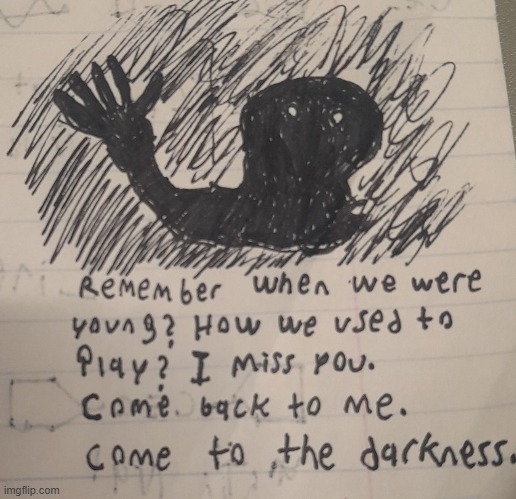 Remember when we were
young? How we used to
Play? I miss you.
Come back to me.
come to the darkness.
imgflip.com